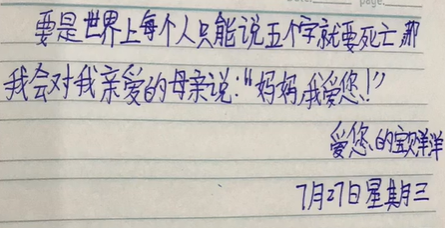 要是世界上每个人只能说五个字就要死亡那
我会对我亲爱的母亲说:“妈妈,我爱您!”
爱您的宝贝洋洋
7月27日星期三